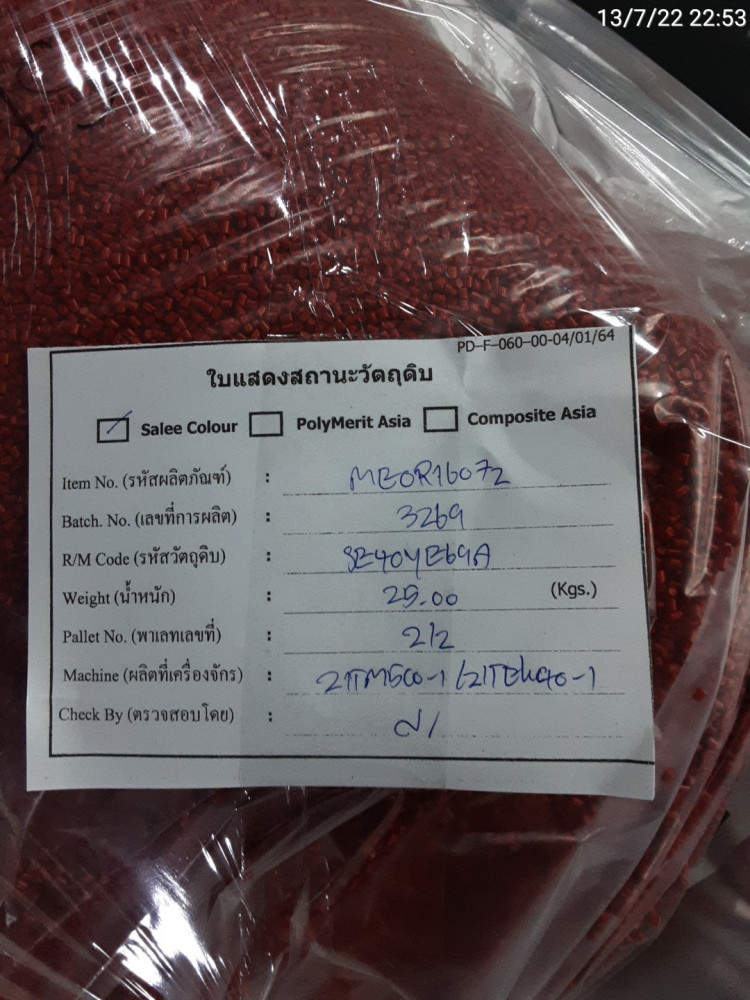 13/7/22 22:53
PD-F-060-00-04/01/64
ใบแสดงสถานะวัตถุดิบ
Salee Colour PolyMerit Asia Composite Asia
Item No. (รหัสผลิตภัณฑ์) :
Batch. No. (เลขที่การผลิต) : 3269
R/M Code (รหัสวัตถุดิบ) :
Weight (น้ำหนัก) : 25.00 (Kgs.)
Pallet No. (พาเลทเลขที่) : 2/2
Machine (ผลิตที่เครื่องจักร) :
Check By (ตรวจสอบโดย) :